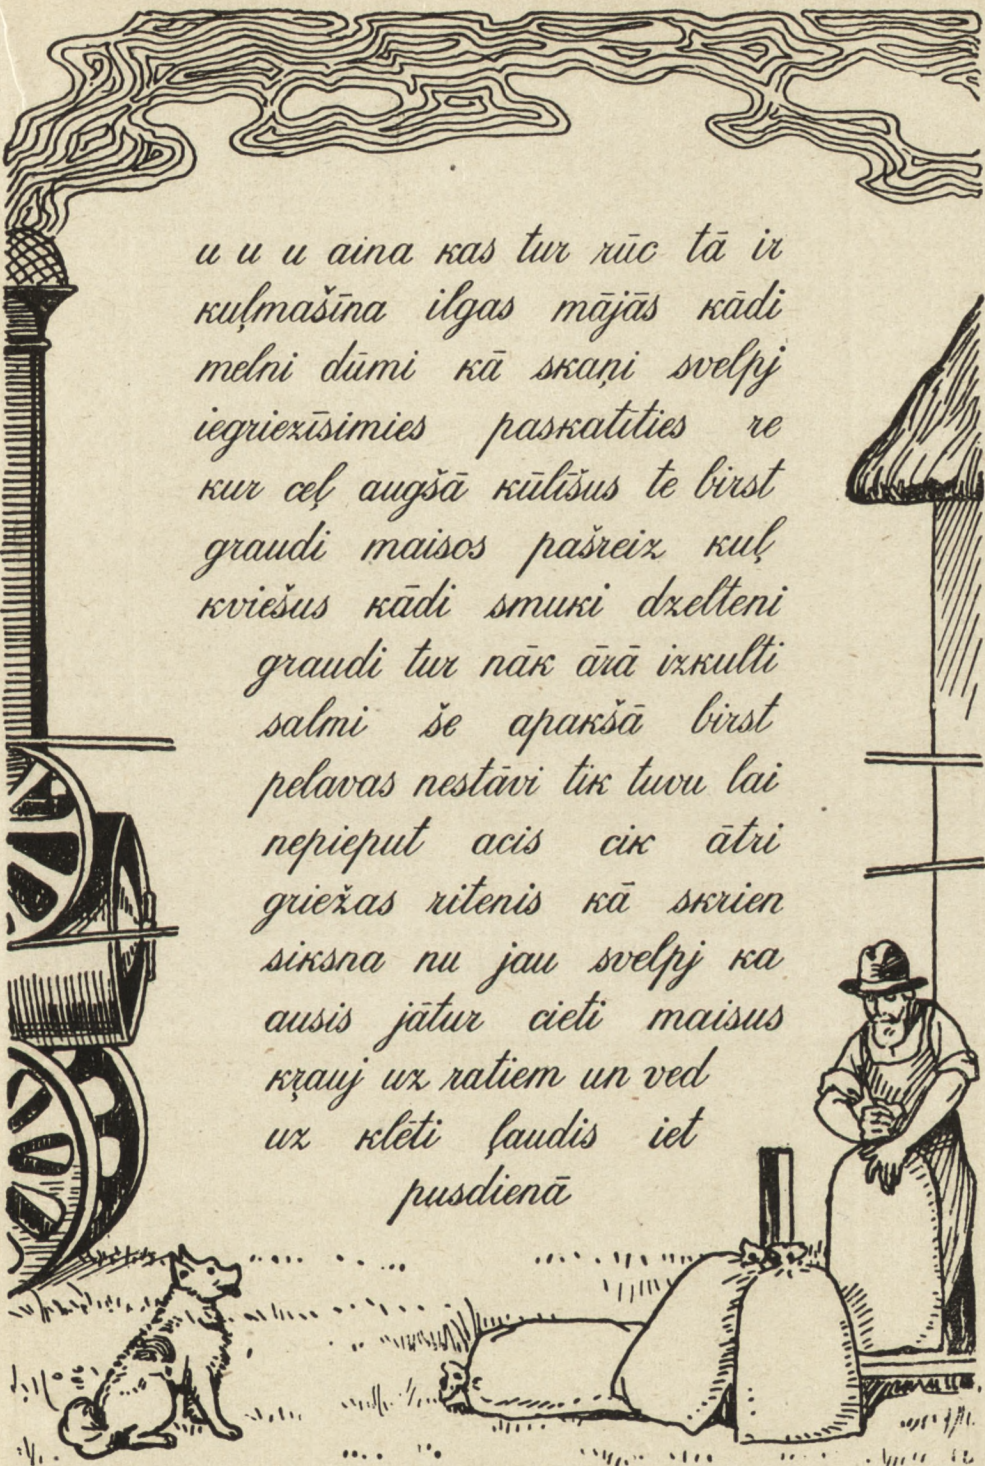 u u u aina kas tur rūc tā ir
kuļmašīna ilgas mājās kādi
melni dūmi kā skaņi svelpj
iegriezīsimies paskatīties re
kur ceļ augšā kūlīšus te birst
graudi maisos pašreiz kuļ
kviešus kādi smuki dzelteni
graudi tur nāk ārā izkulti
salmi še apakšā birst
pelavas nestāvi tik tuvu lai
nepieput acis cik ātri
griežas ritenis kā skrien
siksna nu jau svelpj ka
ausis jātur cieti maisus
kŗauj uz ratiem un ved
uz klēti ļaudis iet
pusdienā